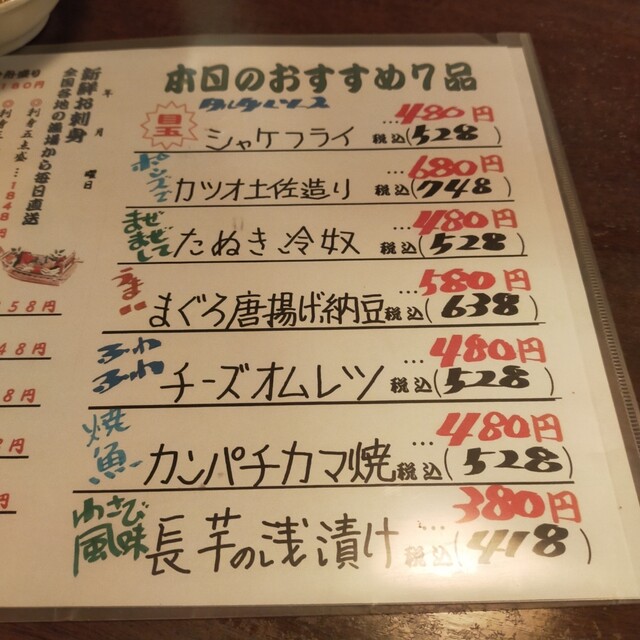 本日のおすすめ7品
目玉 シャケフライ …480円 税込(528)
ポン酢で カツオ土佐造り …680円 税込(748)
まぜまぜして たぬき冷奴 …480円 税込(528)
うまい!! まぐろ唐揚げ納豆 …580円 税込(638)
ふわふわ チーズオムレツ …480円 税込(528)
焼魚 カンパチカマ焼 …480円 税込(528)
わさび風味 長芋の浅漬け …380円 税込(418)
年 月 曜日
新鮮お刺身
全国各地の漁場から毎日直送
◎刺身五点盛…1848円
58円
48円
8円
8円
円